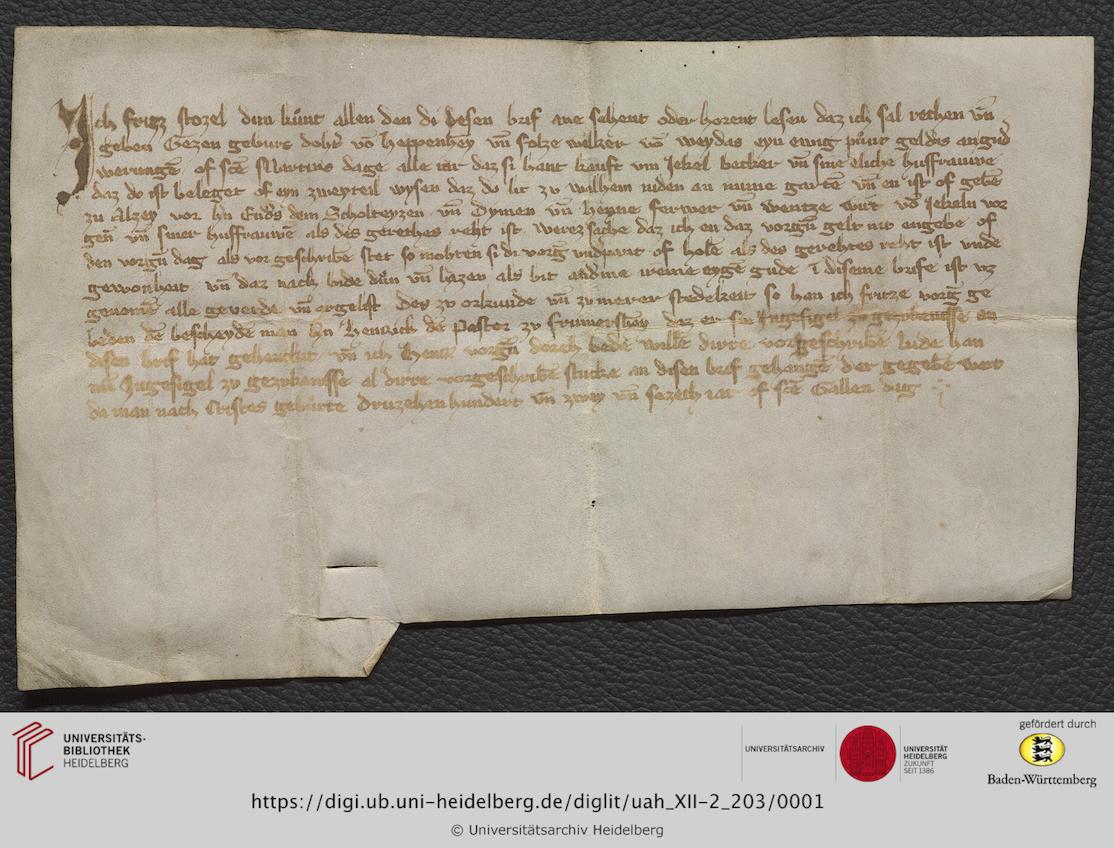 Ich fritz stozel dun kůnt allen den di desen brif ane sehent oder horent lesen daz ich sal reichen vn̄
geben Gezen geburs doht' vō Heppenhey vn̄ folze welker vō weydas eyn ewig půnt geldes
werungē of sc̄e Martins dage alle iar daz si hant kauft vm Jekel becker vn̄ sine eliche husfrauwe
daz do ist beleget of eyn zweyteil wysen daz do lit zu walhem niden an mime gartē vn̄ en ist of gebē
zu Alzey vor hn̄ dem Scholteyzen vn̄ Dymen vn̄ heyne ferwer vn̄ wentze wirt vō Jekeln vor
gen̄ vn̄ siner husfrauwē als des gerethes reht ist werez sache daz ich en daz vorgn̄ gelt nit engebe of
den vorgn̄ dag als vor geschribē stet so mohten si di vorḡ vndpant of holē als des gerechtes reht ist vnde
gewonheit vn̄ dar nach bide důn vn̄ lazen als bit and'me meme eygē gude ī diseme brife ist vz
genomē alle geverde vn̄ argelist des zu orkunde vn̄ zu merer stedekeit so han ich fritze vorḡ ge
beden dē bescheyden man hn̄ Henrich dē Paster zu daz er sin Ingesigel zu gezukenisse an
disen brif hat gehenket vn̄ ich Henr vorgn̄ dorch bede wille dirre vorgeschribē lude han
min Ingesigel zu gezukenisse al dirre vorgeschribē stucke an disen brif gehangē der gegebē wart
da man nach Cristes gebůrte druzehen hundert vn̄ zwey vn̄ sezech iar of sc̄e Gallen dag
UNIVERSITÄTS-
BIBLIOTHEK
HEIDELBERG
UNIVERSITÄTSARCHIV
UNIVERSITÄT
HEIDELBERG
ZUKUNFT
SEIT 1386
gefördert durch
Baden-Württemberg
https://digi.ub.uni-heidelberg.de/diglit/uah_XII-2_203/0001
© Universitätsarchiv Heidelberg